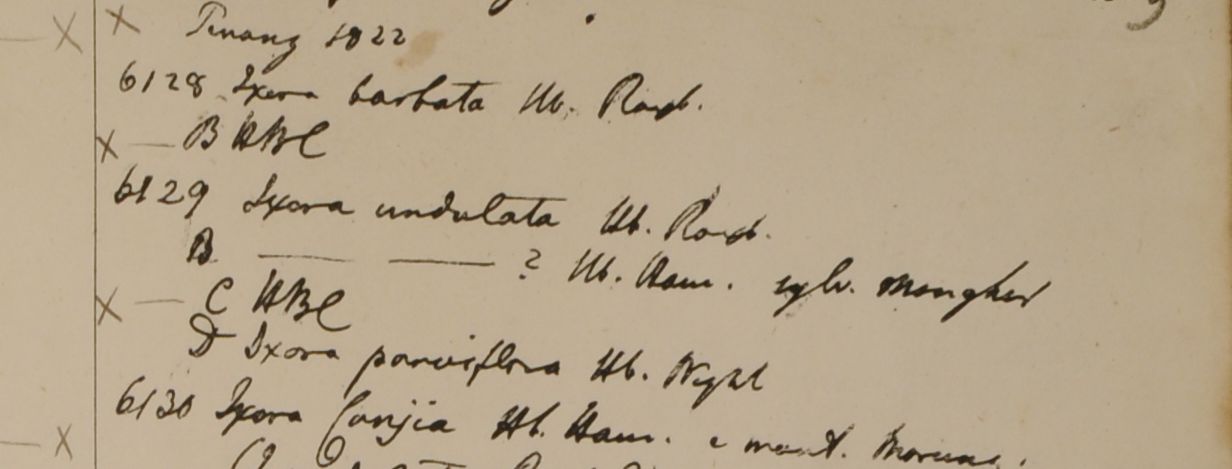 × Penang 1822
6128 Ixora barbata Hb. Roxb.
× — B HBC
6129 Ixora undulata Hb. Roxb.
B — — ? Hb. Ham. sylv. Mongher
× — C HBC
D Ixora parviflora Hb. Wight
6130 Ixora Conjia Hb. Ham. e mont. Morung.